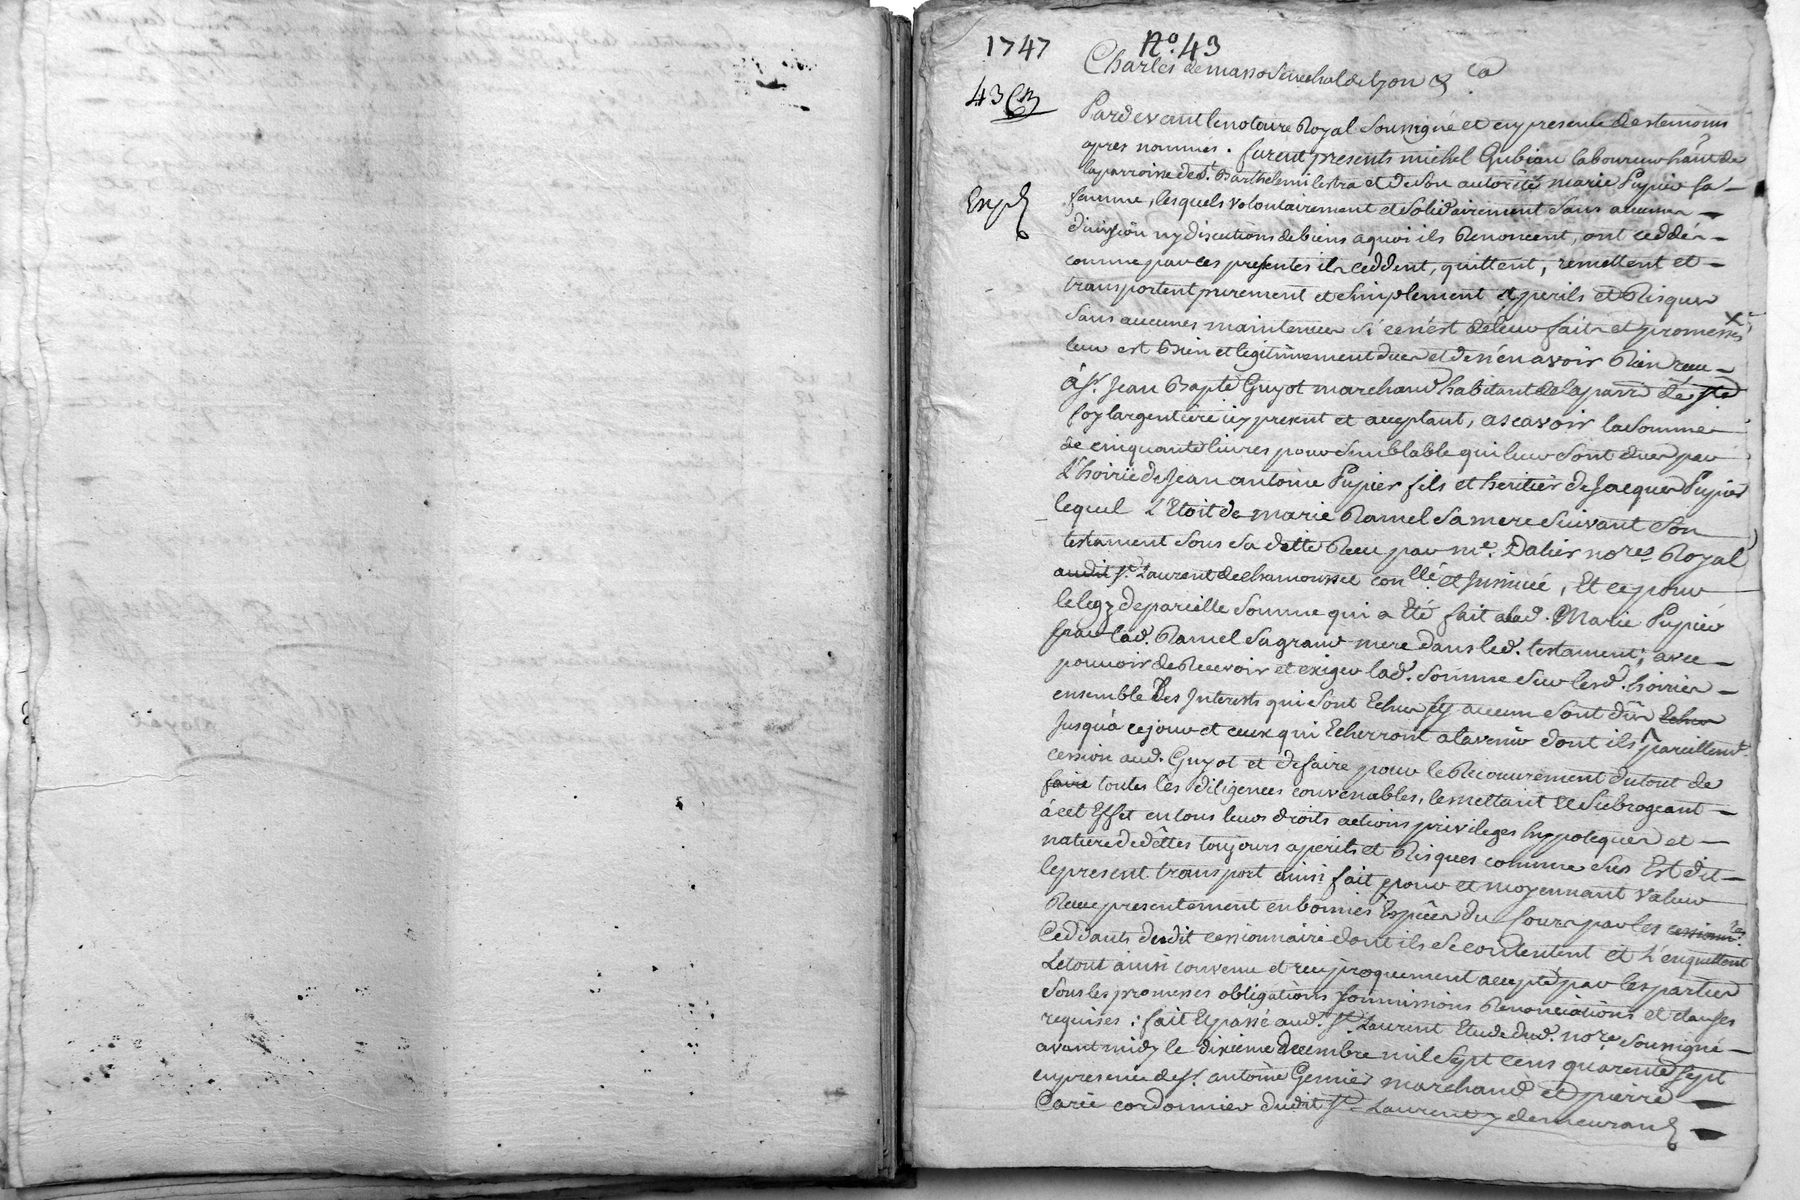 1747
No. 43
43 Cn
Charles de masso Senechal de Lyon & ca
Pardevant le notaire Royal Soussigné et en presence des temoins
apres nommes. furent presents michel Gubian laboureur hânt de
la parroisse de St. Barthelemi lestra et de Son autorité marie Pupier Sa
femme, lesquels volontairement et solidairement Sans aucune
Expd
division ny discutions de biens a quoi ils Renoncent, ont ceddés
comme par ces presentes ils ceddent, quittent, remettent et
transportent purement et simplement et perils et Risques
Sans aucunes maintenues Si ce n'est de leur faits et promesses
leur est Bien et legitimement dues et de n'en avoir Rien reçu
â Sr. Jean Bapte Guyot marchand habitant de la parre de Ste
foy largentiere icy present et acceptant, ascavoir la Somme
de cinquante livres pour Semblable qui leur Sont dues par
L'hoirie de Jean antoine Pupier fils et heritier de Jacques Pupier
lequel L'Etoit de marie Ramel Sa mere Suivant Son
testament Sous Sa datte Reçu par me. Dalier nores Royal
audit St. Laurent de chamousset conllé et Jnsinué, Et ce pour
le legz de pareille Somme qui a Eté fait a lad. Marie Pupier
par lad. Ramel Sa grand mere dans led. testament; avec
pouvoir de Recevoir et exiger lad. Somme Sur lesd. hoiries
ensemble Des Jnterests qui Sont Echus Sy aucun Sont dûs Echus
Jusqu'a ce jour et ceux qui Echerront a l'avenir dont ils ^ pareillemt
cession aud. Guyot et de faire pour le Recouvrement du tout de
faire toutes les diligences convenables, le mettant et Subrogeant
â cet Effet en tous leurs droits actions privileges hypoteques et
nature de dêttes toujours a perils et Risques comme Sus Est dit
le present transport ainsi fait pour et moyennant valeur
Reçue presentement en bonnes Espêces du Cours par les cessionn. les
Ceddants dudit cessionnaire dont ils Se contentent et L'enquittent
Le tout ainsi convenu et reciproquement accepté par les parties
Sous les promesses obligations Soumissions Renonciations et clauses
requises: fait Et passé aud. St. Laurent Etude dud. nore Soussigné
avant midy le dixieme decembre mil Sept cens quarente Sept
en presence de Sr. antoine Genier marchand et pierre
Carie cordonnier dudit St. Laurent y demeurant